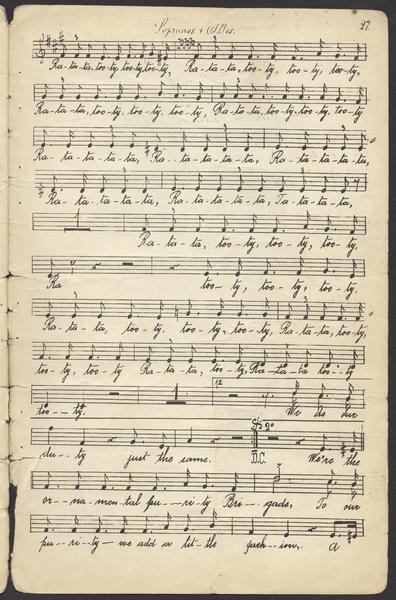 Sopranos & Altos. 27.
Ra-ta-ta, too-ty, too-ty, too-ty, Ra-ta-ta, too-ty, too-ty, too-ty,
Ra-ta-ta, too-ty, too-ty, too-ty, Ra-ta-ta, too-ty, too-ty, too-ty
Ra-ta-ta-ta-ta, Ra-ta-ta-ta-ta, Ra-ta-ta-ta-ta,
Ra-ta-ta-ta-ta, Ra-ta-ta-ta-ta, Ta-ta-ta-ta,
1
Ra-ta-ta, too-ty, too-ty, too-ty.
Ra too-ty, too-ty, too-ty.
Ra-ta-ta, too-ty, too-ty, too-ty, Ra-ta-ta, too-ty,
too-ty, too-ty Ra-ta-ta, too-ty, Ra-ta-ta too-ty
1. 12
too--ty. We do our
2º
du--ty just the same. D.C. We're the
or--na-men-tal pu--ri-ty Bri-gade, To our
pu--ri-ty- we add a lit-tle fash-ion, a